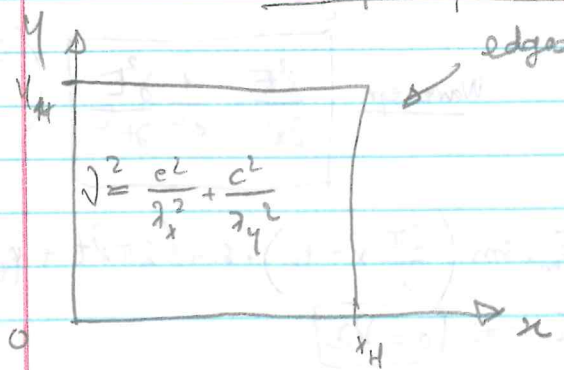 y
edge
y_M
ν² = e²/λ_x² + c²/λ_y²
0
x_H
x